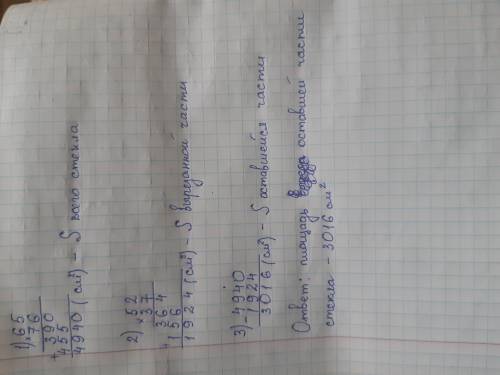 1) 65
× 76
390
+ 455
4940 (см²) – S всего стекла
2) 52
× 37
364
+ 156
1924 (см²) – S вырезанной части
3) – 4940
1924
3016 (см²) – S оставшейся части
Ответ: площадь оставшей части
стекла – 3016 см²